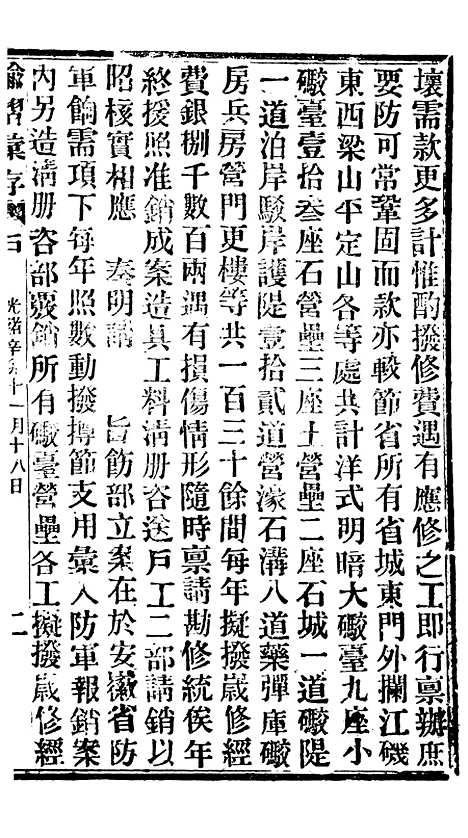 壞需款更多計惟酌撥修費遇有應修之工即行稟辦庶
要防可常鞏固而款亦較節省所有省城東門外攔江磯
東西梁山平定山各等處共計洋式明暗大礮臺九座小
礮臺壹拾叁座石營壘三座土營壘二座石城一道礮隄
一道泊岸駁岸護隄壹拾貳道營濠石溝八道藥彈庫礮
房兵房營門更樓等共一百三十餘間每年擬撥歲修經
費銀捌千數百兩遇有損傷情形隨時稟請勘修統俟年
終援照准銷成案造具工料淸册咨送戶工二部請銷以
昭核實相應 奏明請 旨飭部立案在於安徽省防
軍餉需項下每年照數動撥撙節支用彙入防軍報銷案
內另造淸册咨部覈銷所有礮臺營壘各工擬撥歲修經
諭摺彙存 光緒辛丑十一月十八日 二